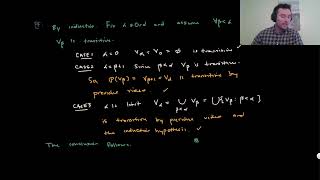 Pf By induction. Fix α∈Ord and assume ∀β<α
Vβ is transitive.
CASE1 α=0 Vα=V0=∅ is transitive ✓
CASE2 α=β+1 Since β<α Vβ is transitive.
So P(Vβ)=Vβ+1=Vα is transitive by
previous video. ✓
CASE3 α is limit Vα=⋃β<α Vβ=⋃{Vβ:β<α}
is transitive by previous video and
the inductive hypothesis. ✓
The conclusion follows.